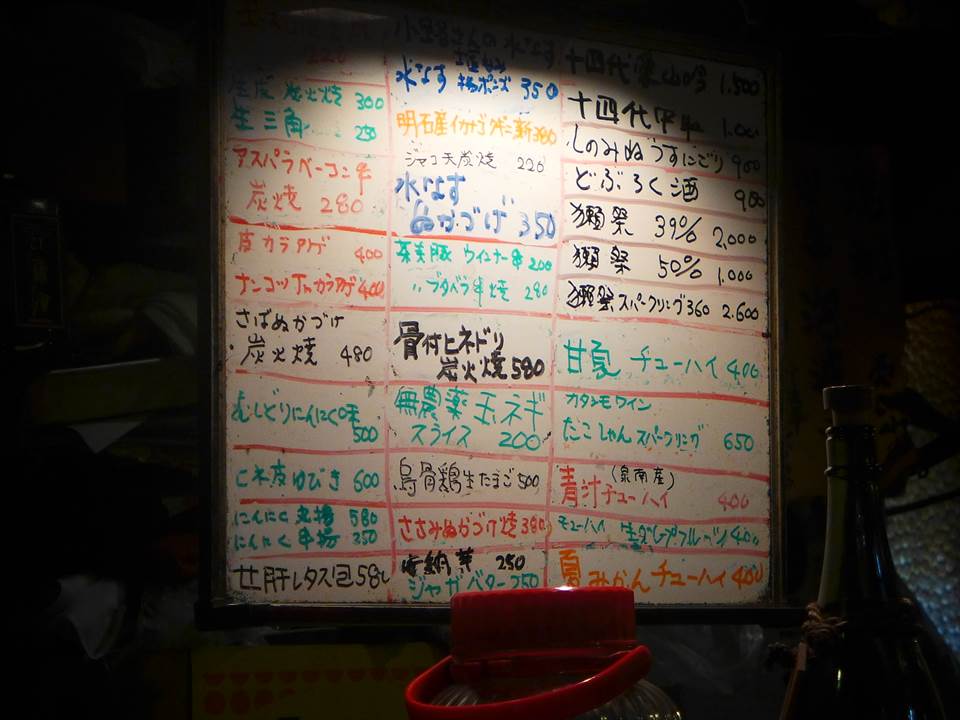 220
炭火焼 300
生三角 250
アスパラベーコン串
炭焼 280
皮カラアゲ 400
ナンコツTnカラアゲ 400
さばぬかづけ
炭火焼 480
むしどりにんにく味
500
ヒネ皮ゆびき 600
にんにく丸揚 580
にんにく串揚 250
廿肝レタス包 580
小里さんの水なす
水なす 揚ポンズ 350
明石産イカナゴクギニ新 380
ジャコ天炭焼 220
水なす
ぬかづけ 350
茶美豚ウインナー串 200
〃ブタバラ串焼 280
骨付ヒネドリ
炭火焼 580
無農薬玉ネギ
スライス 200
烏骨鶏生たまご 500
ささみぬかづけ焼 380
安納芋 250
ジャガバター 250
十四代 1.500
十四代 1.000
しのみねうすにごり 900
どぶろく酒 900
獺祭 39% 2,000
獺祭 50% 1.000
獺祭スパークリング360 2.600
甘夏 チューハイ 400
カタシモワイン
たこしゃんスパークリング 650
(泉南産)
青汁チューハイ 400
モューハイ 生グレープフルーツ 400
夏みかんチューハイ 400